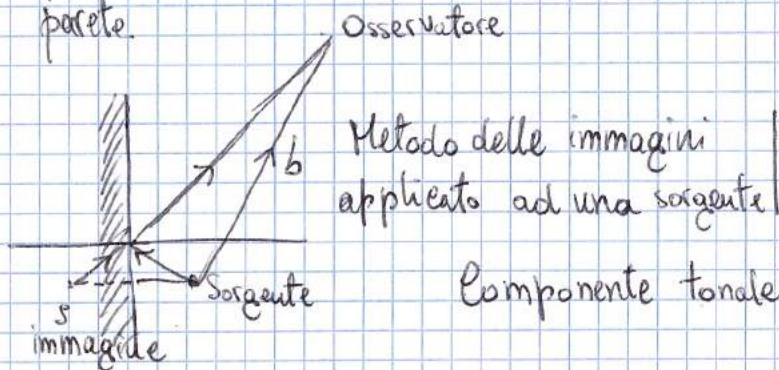 parete.
Osservatore
Metodo delle immagini
b
applicato ad una sorgente
Sorgente
Componente tonale
S
immagine